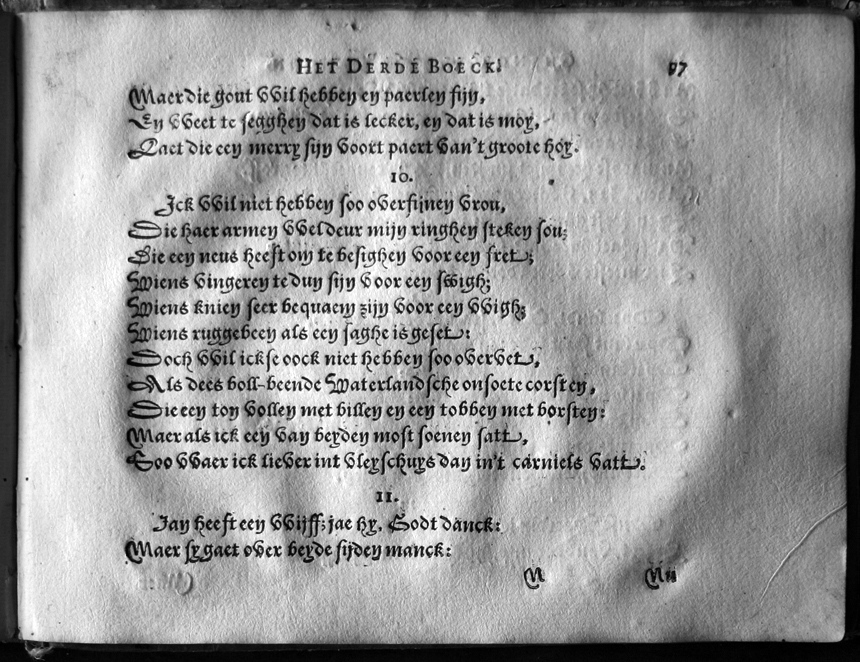 HET DERDE BOECK. 97
Maer die gout wil hebben en paerlen fijn,
En weet te segghen dat is lecker, en dat is moy,
Laet die een merry sijn voort paert van't groote hoy.
10.
Ick wil niet hebben soo overfijnen vrou,
Die haer armen wel deur mijn ringhen steken sou;
Die een neus heeft om te besighen voor een fret;
Wiens vingeren te dun sijn voor een swigh;
Wiens knien seer bequaem zijn voor een wigh;
Wiens ruggebeen als een saghe is geset:
Doch wil ick se oock niet hebben soo overvet,
Als dees boll-beende Waterlandsche onsoete corsten,
Die een ton vollen met billen en een tobben met borsten:
Maer als ick een van beyden most soenen satt,
Soo waer ick liever int vleyschuys dan in't carniels vatt.
11.
Jan heeft een wijff; jae hy, Godt danck:
Maer sy gaet over beyde sijden manck:
N Nu